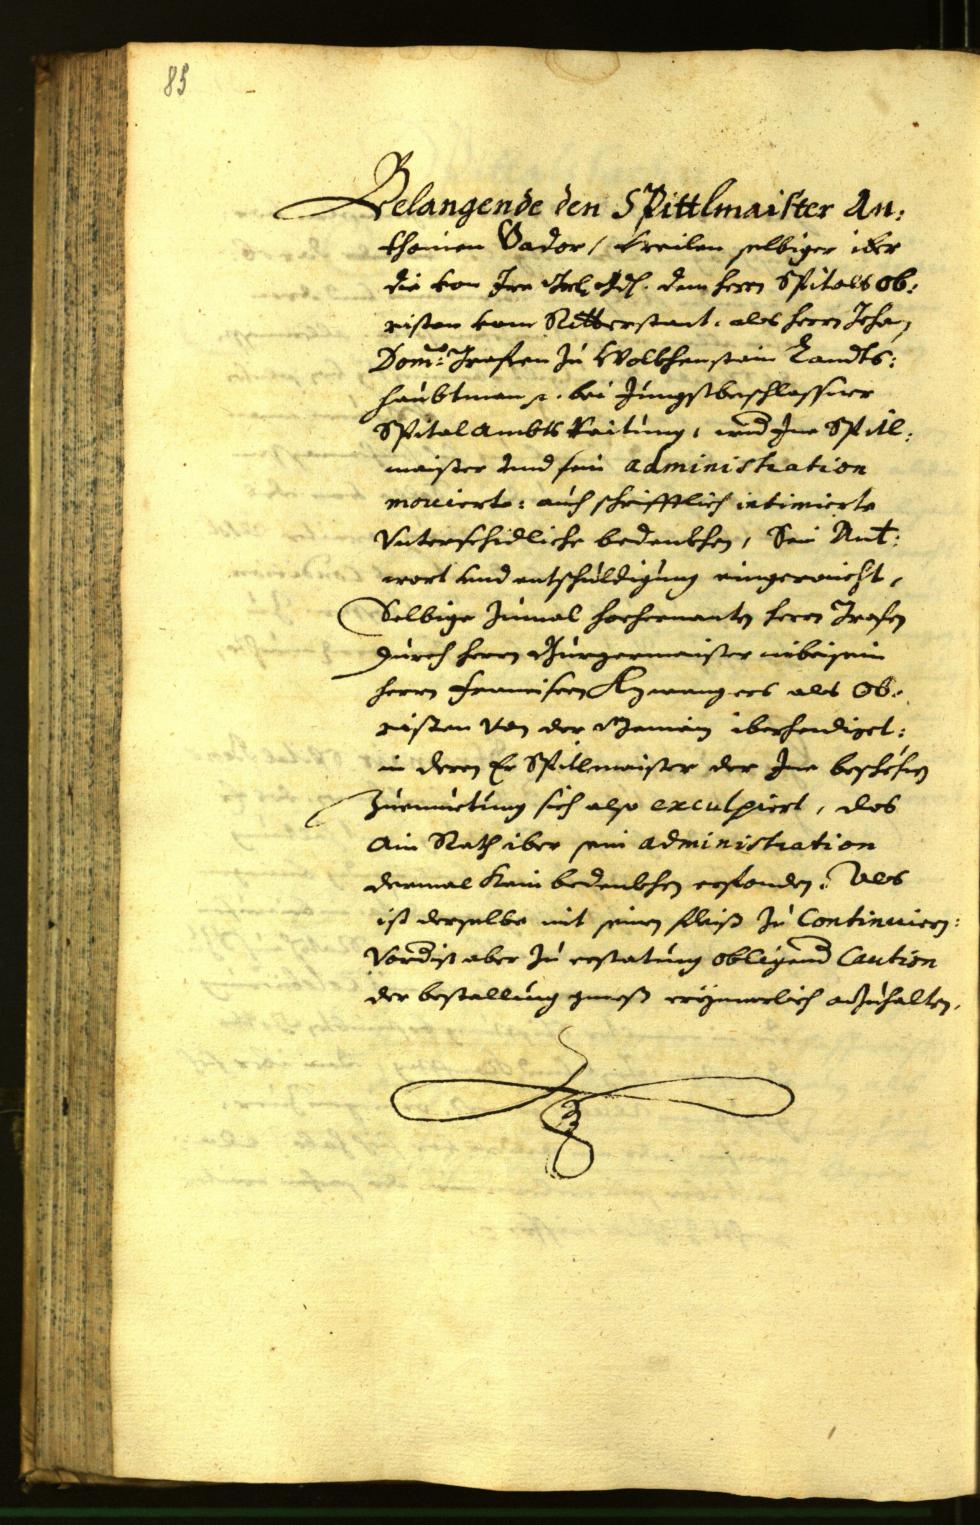 85
Belangende den Spittlmaister An:
thonien Vador, weilen selbiger iber
die von Irer dem herrn Spitals Ob:
risten vom Ritterstant, als herrn Johan
Dom: Grafen zu Wolkhenstain Landts:
haubtman p. bei Jungstbeschlossner
Spitalambts Raitung, und Ine Spitl:
maister und sein administration
movierte: auch schrifftlich intimierte
Unterschidliche bedenkhen, Sein Ant:
wort und entschuldigung eingeraicht,
Selbige zumal hochernanten herrn Grafen
durch herrn Burgermaister in beisein
herrn Francisen als Ob:
risten von der Gemain iberhendiget:
in deren Er Spitlmaister der Ine beschehen
Zuemuetung sich also exculpiert, das
Ain Rath iber sein administration
dermal kain bedenkhen erfonden, Als
ist derselbe mit seinen fleiß zu Continuiern:
Vordist aber zu erstatung obligend Caution
der bestallung gmeß erynnerlich anzuhalten.